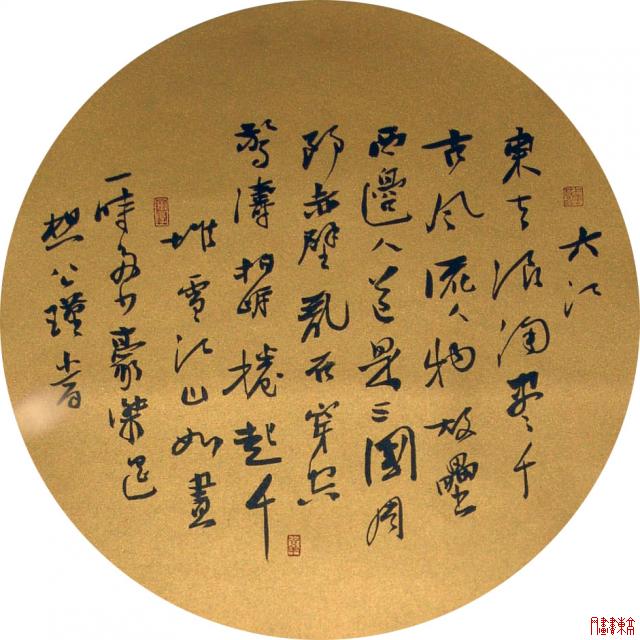 大江
東去浪淘盡千
古風流人物故壘
西邊人道是三國周
郎赤壁亂石穿空
驚濤拍岸捲起千
堆雪江山如畫
一時多少豪傑遙
想公瑾